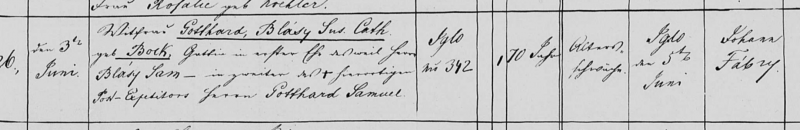 Frau Rosalie geb Köhler.
26, den 3ᵗᵉ Juni. Witfrau Gotthard, Blásy Sus. Cath.
geb Bock, Gattin in erster Ehe des weil Herrn
Blásy Sam – in zweiter des † hierortigen
Post-Expeditors Herrn Gotthard Samuel
Iglo
No 342
70 Jahre
Alters-
schwäche.
Iglo
den 5ᵗᵉ
Juni
Johann
Fábry.